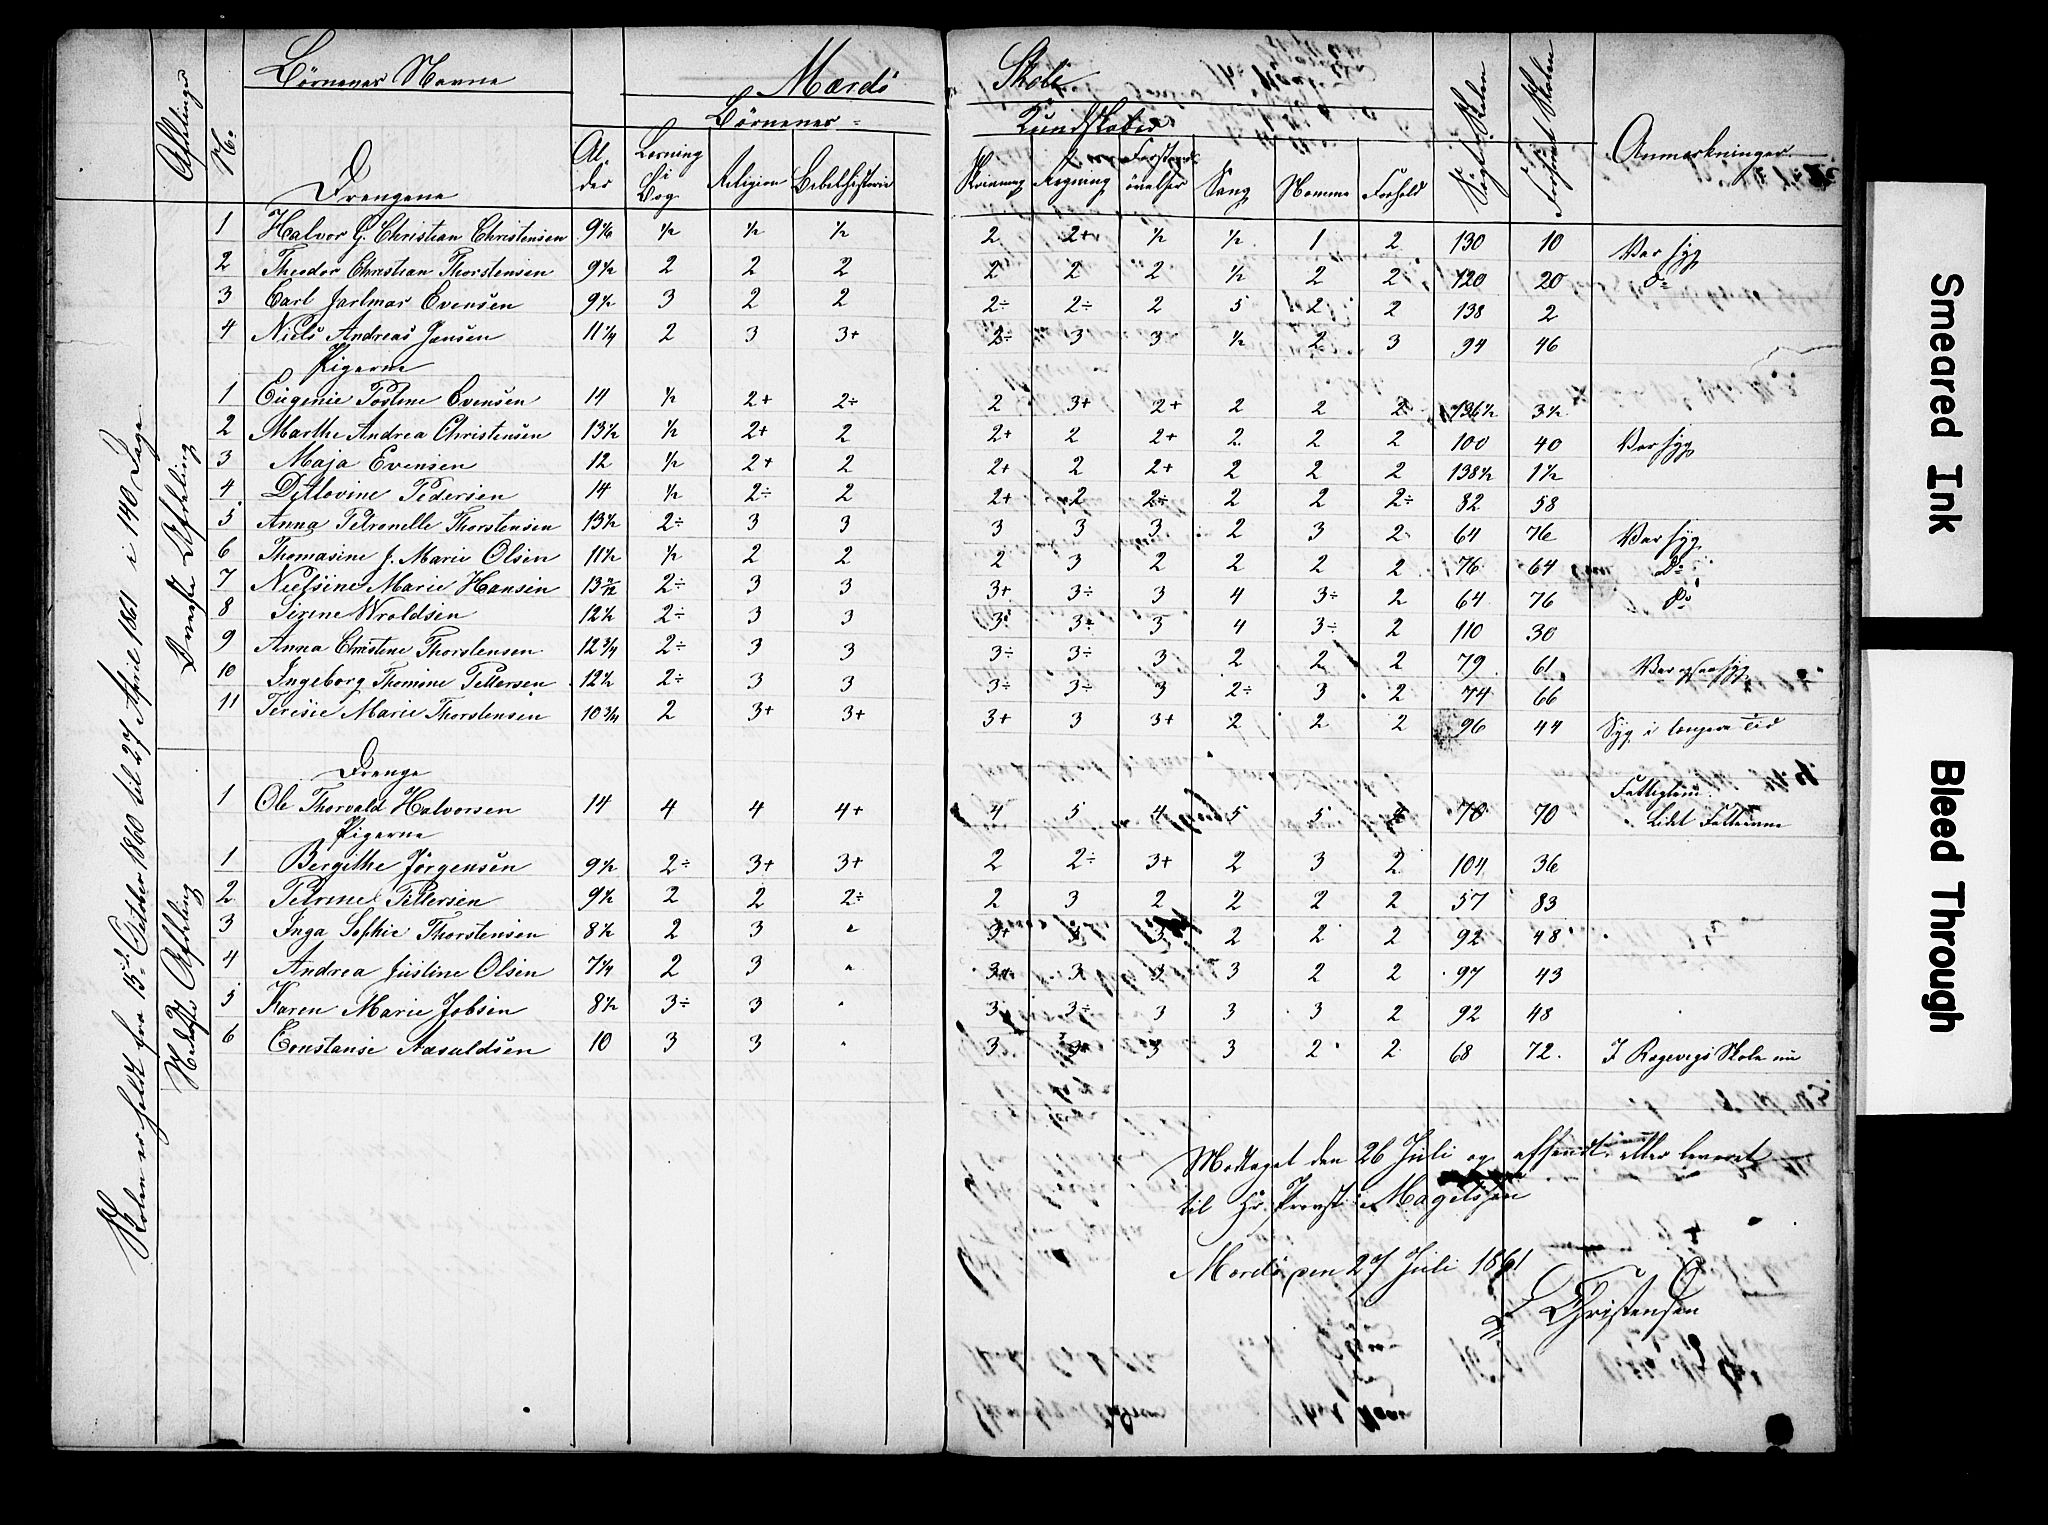 Børnenes Navne Mærdø Skole
Børnenes Kundskaber
Afdelinger N. Drengene Alder Læsning i Bog Religion Bibelhistorie Skrivning Regning Forstands øvelser Sang Nemme Forhold Søgt Skolen Forsømt Skolen Anmærkninger
Skolen er holdt fra 15d October 1860 til 27 April 1861 i 140 Dage
Øverste Afdeling
1 Halvor G. Christian Christensen 9 ½ ½ ½ 2 2+ ½ ½ 1 2 130 10 Var syg
2 Theodor Christian Thorstensen 9½ 2 2 2 2 2 2 ½ 2 2 120 20 Do
3 Carl Jarlmar Evensen 9½ 3 2 2 2÷ 2÷ 2 5 2 2 138 2
4 Niels Andreas Jensen 11¼ 2 3 3+ 2÷ 3 3 ½ 2 3 94 46
Pigerne
1 Eugenie Postene Evensen 14 ½ 2+ 2÷ 2 3+ 2+ 2 2 2 136½ 3½
2 Marthe Andrea Christensen 13½ ½ 2+ 2 2+ 2 2+ 2 2 2 100 40 Var syg
3 Maja Evensen 12 ½ 2+ 2 2+ 2 2+ 2 2 2 138½ 1½
4 Ditlovine Pedersen 14 ½ 2÷ 2 2+ 2 2÷ 2 2 2÷ 82 58
5 Anna Petronelle Thorstensen 13½ 2÷ 3 3 3 3 3 2 3 2 64 76 Var syg
6 Thomasine J. Marie Olsen 11½ ½ 2 2 2 3 2 2 2 2 76 64 Do
7 Nielsine Marie Hansen 13 2÷ 3 3 3+ 3÷ 3 4 3÷ 2 64 76 Do
8 Sirene Wroldsen 12½ 2÷ 3 3 3 3+ 3 4 3÷ 2 110 30
9 Anna Christene Thorstensen 12¾ 2÷ 3 3 3÷ 3÷ 3 2 2 2 79 61 Var syg
10 Ingeborg Thomine Pettersen 12½ 2÷ 3 3 3÷ 3÷ 3 2÷ 3 2 74 66
11 Teresie Marie Thorstensen 10¾ 2 3+ 3+ 3+ 3 3+ 2 2 2 96 44 Syg i længere Tid
Nederste Afdeling
Drenge
1 Ole Thorvald Halvorsen 14 4 4 4+ 4 5 4 5 5 4 70 70 Lidet Fatteevne
Pigerne
1 Bergithe Jørgensen 9½ 2÷ 3+ 3+ 2 2÷ 3+ 2 3 2 104 36
2 Petrine Pettersen 9½ 2 2 2÷ 2 3 2 2 2 2 57 83
3 Inga Sophie Thorstensen 8½ 2 3 " 3+ 3 3 2 2 2 92 48
4 Andrea Justine Olsen 7¼ 2 3 " 3+ 3 3 3 2 2 97 43
5 Karen Marie Jobsen 8½ 3÷ 3 " 3 3÷ 3 3 3 2 92 48
6 Constanse Aasuldsen 10 3 3 " 3 3+ 3 3 2 2 68 72 I Ragevigs Skole nu
Modtaget den 26 Juli og afsendt eller leveret
til Hr. Provst Magelssen
Mærdø den 27 Juli 1861
Christensen
Smeared Ink
Bleed Through